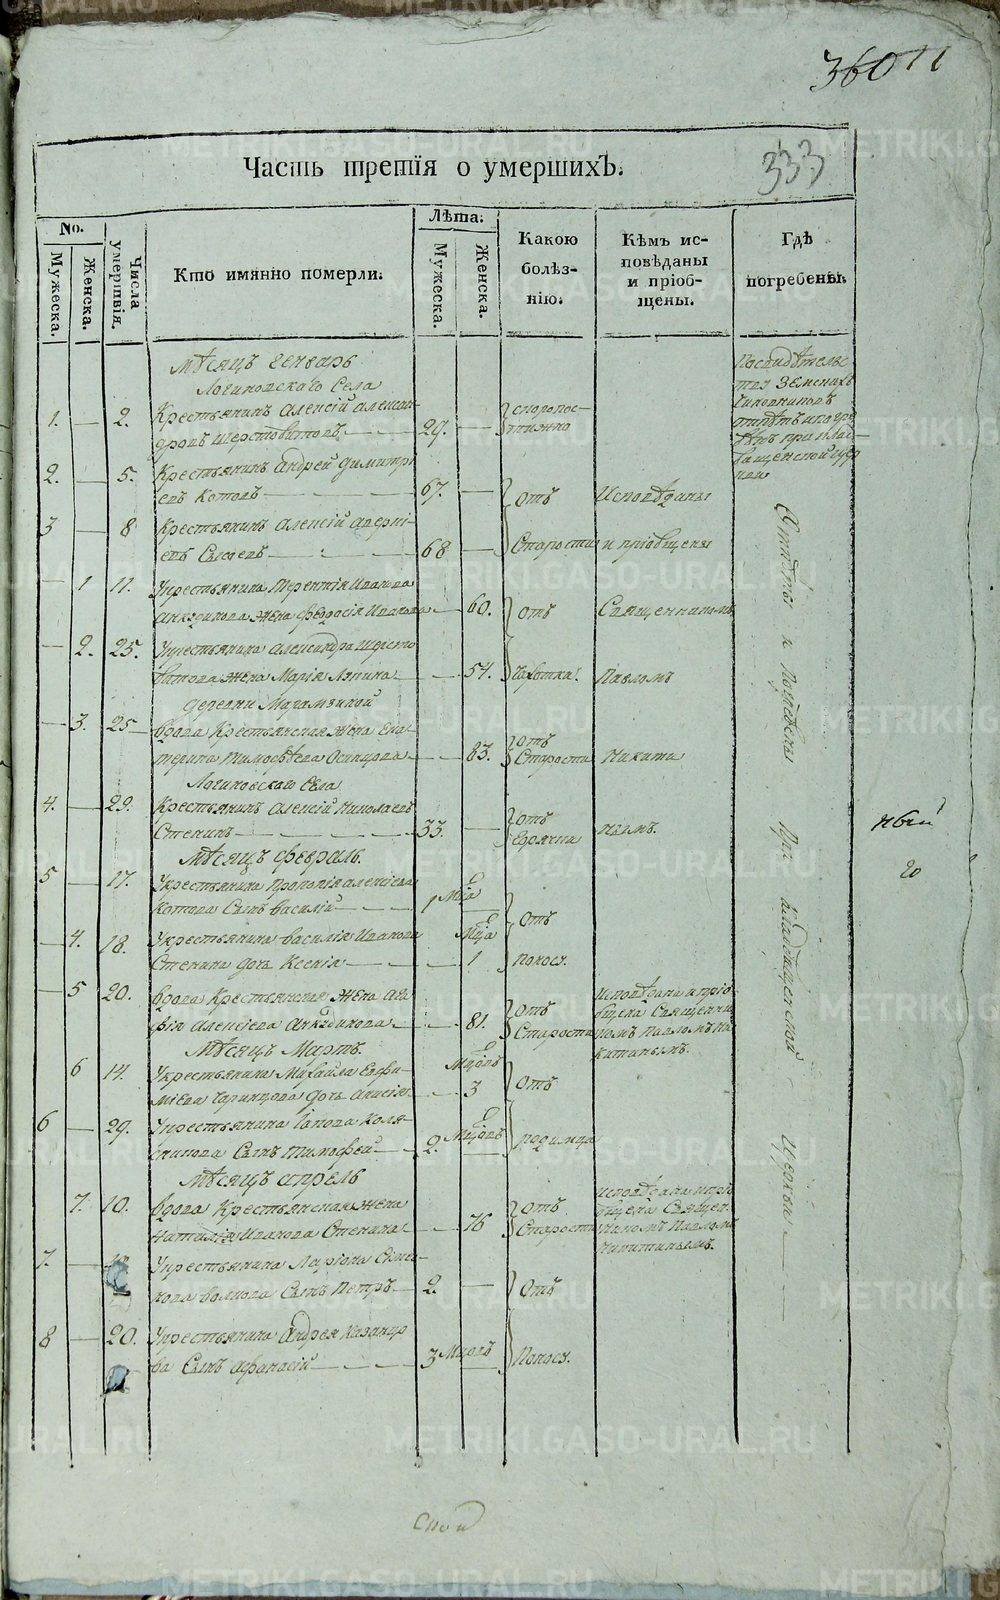 36011
Часть третія о умершихъ.
333
No.
Мужеска.
Женска.
Числа умершвія.
Кто имянно померли.
Лѣта.
Мужеска.
Женска.
Какою болѣз-
нію.
Кѣмъ ис-
повѣданы
и пріоб-
щены.
Гдѣ
погребены.
Мѣсяцъ Генварь
Логиновскаго Села
1. — 2. Крестьянинъ Алексій Алексан-
дровъ Шерстобитовъ — 29. — скоропос-
тижно
2. — 5. Крестьянинъ Андрей Димитрі
евъ Котовъ — 67. — Отъ Исповѣданы
3 — 8 Крестьянинъ Алексій
евъ — 68 — Старости и пріобщены
— 1 11. Укрестьянина Терентія Иванова
жена Феодосія Иванова — 60. Отъ Священникомъ
— 2. 25. Укрестьянина Александра Шерсто
битова жена Марія — 54. Чахотки. Павломъ
Деревни
— 3. 25 — Вдова Крестьянская жена Ека-
терина Тимофѣева Осинцова — 83. Отъ
Старости Никити
Логиновскаго Села
4. — 29. Крестьянинъ Алексій Николаевъ
Стенинъ — 33. — Отъ
Горячки нымъ.
Мѣсяцъ Февраль.
5 — 17. Укрестьянина Прокопія Алексіева
Котова Сынъ Василій — 1 Мца Отъ
— 4. 18. Укрестьянина Василія Иванова
Стенина дочь Ксенія — Мца 1 Поносу.
— 5 20. Вдова Крестьянская жена Ага-
фія Алексіева — 81. Отъ
Старости Исповѣдана и пріо-
бщена Священни
комъ Павломъ Ни
китинымъ.
Мѣсяцъ Мартъ.
6 14. Укрестьянина Михаила Евфи-
міева дочь Анисія — Мцовъ 3 Отъ
6 — 29. Укрестьянина Іакова Коля-
сникова Сынъ Тимофей — 2. Мцовъ родимца
Мѣсяцъ Апрель
7. 10. Вдова Крестьянская жена
Наталія Иванова Стенина — 76 Отъ
Старости Исповѣдана и пріо
бщена Священ-
никомъ Павломъ
Никитинымъ.
7. — Укрестьянина Ларіона
Сынъ Петръ — 2. — Отъ
8 — 20. Укрестьянина Андрея Казанцо
ва Сынъ Афанасій — 3 Мцовъ Поносу.
Посвидѣтельс
тву Земскихъ
Чиновниковъ
отпѣтъ и погре
бенъ при клад-
бищенской цер
кви
Отпѣты и Погребены При Кладбищенской Церкви
20
METRIKI.GASO-URAL.RU